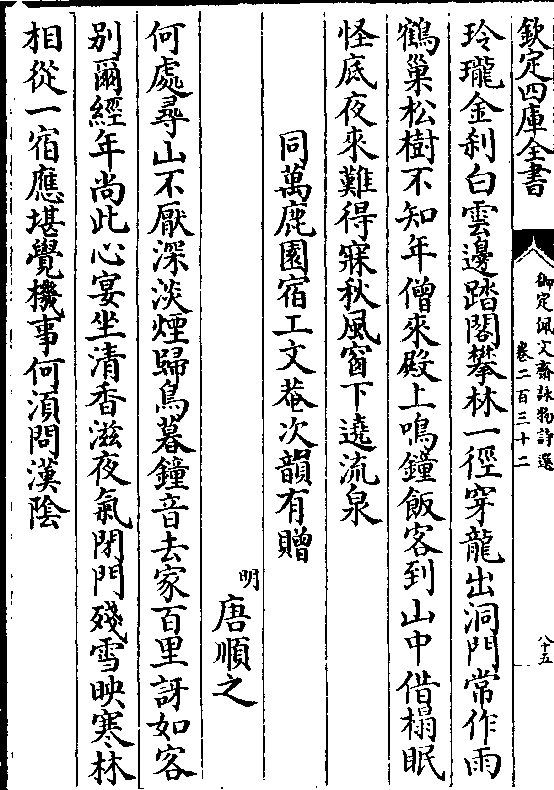 欽定四庫全書
御定佩文齋詠物詩選
卷二百三十二
八十五
玲瓏金刹白雲邊踏閣攀林一徑穿龍出洞門常作雨
鶴巢松樹不知年僧來殿上鳴鐘飯客到山中借榻眠
怪底夜來難得寐秋風窗下遶流泉
同萬鹿園宿工文菴次韻有贈
明 唐順之
何處尋山不厭深淡煙歸鳥暮鐘音去家百里訝如客
别爾經年尚此心宴坐清香滋夜氣閉門殘雪映寒林
相從一宿應堪覺機事何須問漢陰